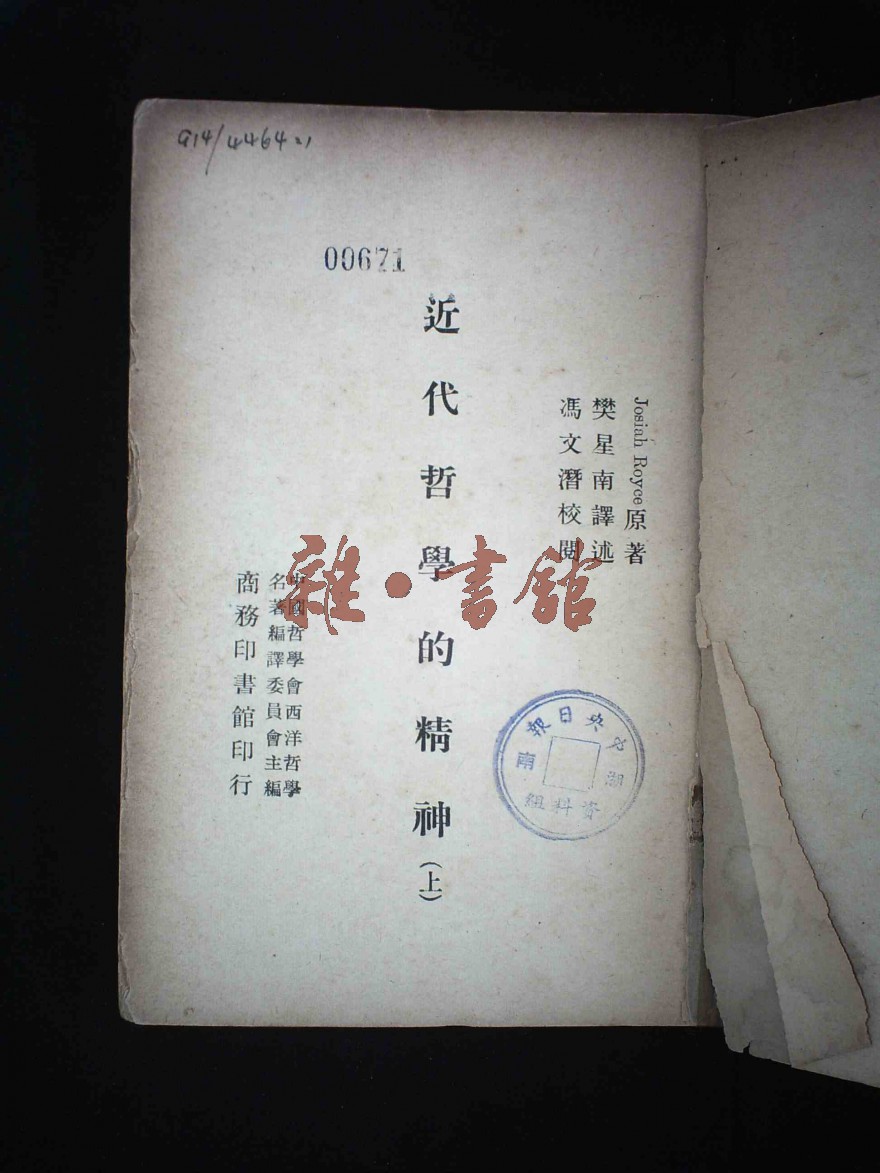 914/4464:1
00671
Josiah Royce 原著
樊星南譯述
馮文潛校閱
近代哲學的精神(上)
中國哲學會西洋哲學
名著編譯委員會主編
商務印書館印行
中央日報
湖南
資料組
雜·書館